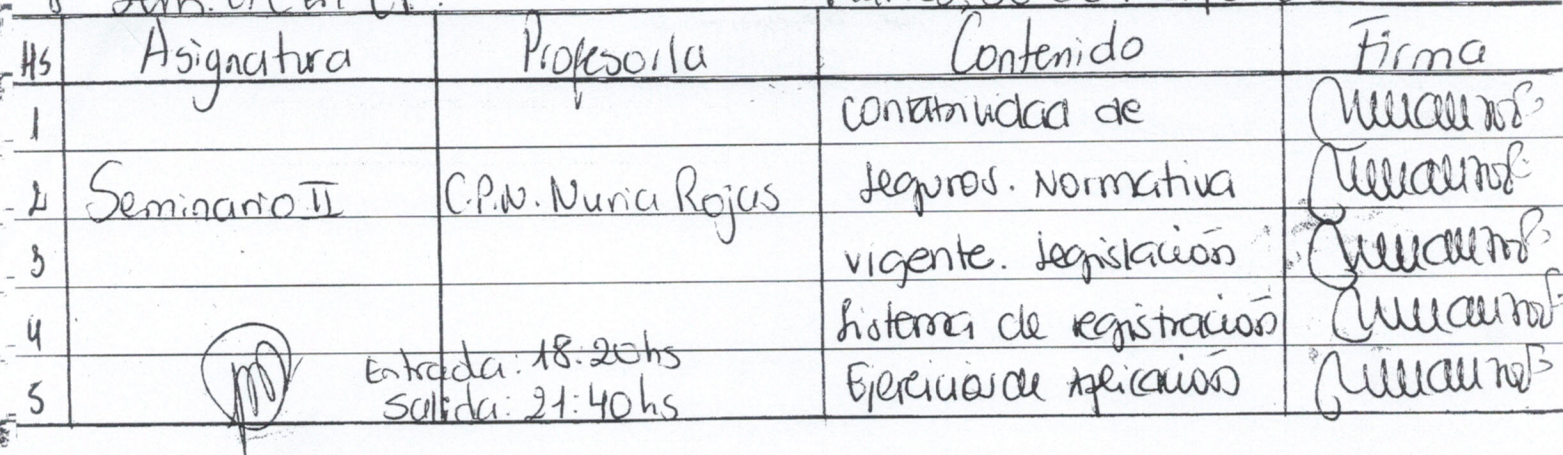 Hs Asignatura Profesor/a Contenido Firma
1 Contabilidad de
2 Seminario II C.P.N. Nuria Rojas seguros. Normativa
3 vigente. Legislación
4 Sistema de registración
Entrada: 18:20hs
5 Ejercicios de Aplicación
Salida: 21:40hs